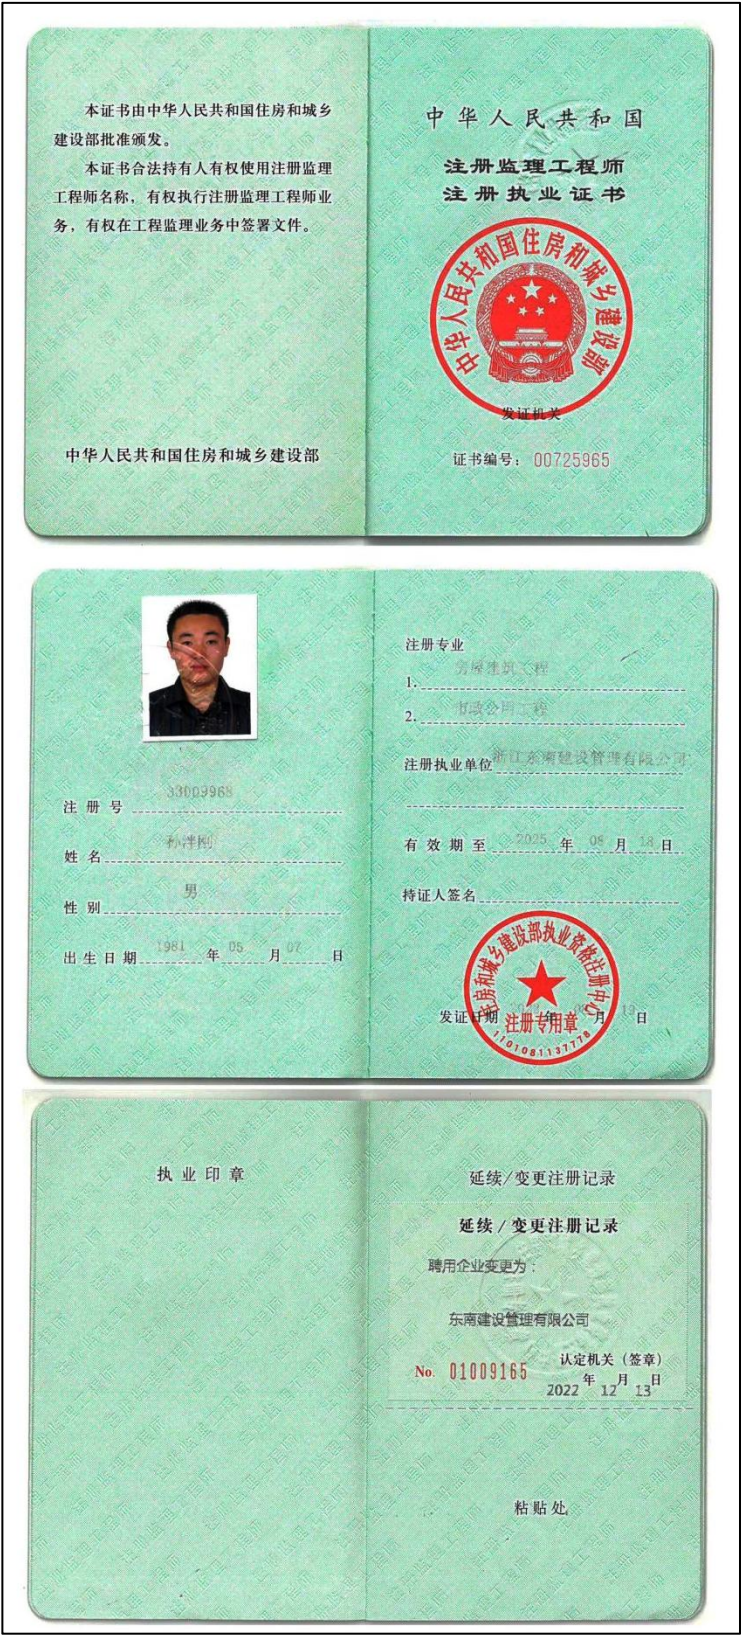 本证书由中华人民共和国住房和城乡
建设部批准颁发。
本证书合法持有人有权使用注册监理
工程师名称，有权执行注册监理工程师业
务，有权在工程监理业务中签署文件。
中华人民共和国住房和城乡建设部
中华人民共和国
注册监理工程师
注册执业证书
中华人民共和国住房和城乡建设部
发证机关
证书编号：00725965
注册号 33009968
姓名 孙泮刚
性别 男
出生日期 1981 年 05 月 07 日
注册专业
1. 房屋建筑工程
2. 市政公用工程
注册执业单位 浙江东南建设管理有限公司
有效期至 2025 年 08 月 18 日
持证人签名
住房和城乡建设部执业资格注册中心
注册专用章
1101081137778
发证日期 年 月 日
执业印章
延续/变更注册记录
延续/变更注册记录
聘用企业变更为：
东南建设管理有限公司
No. 01009165
认定机关（签章）
2022 年 12 月 13 日
粘贴处